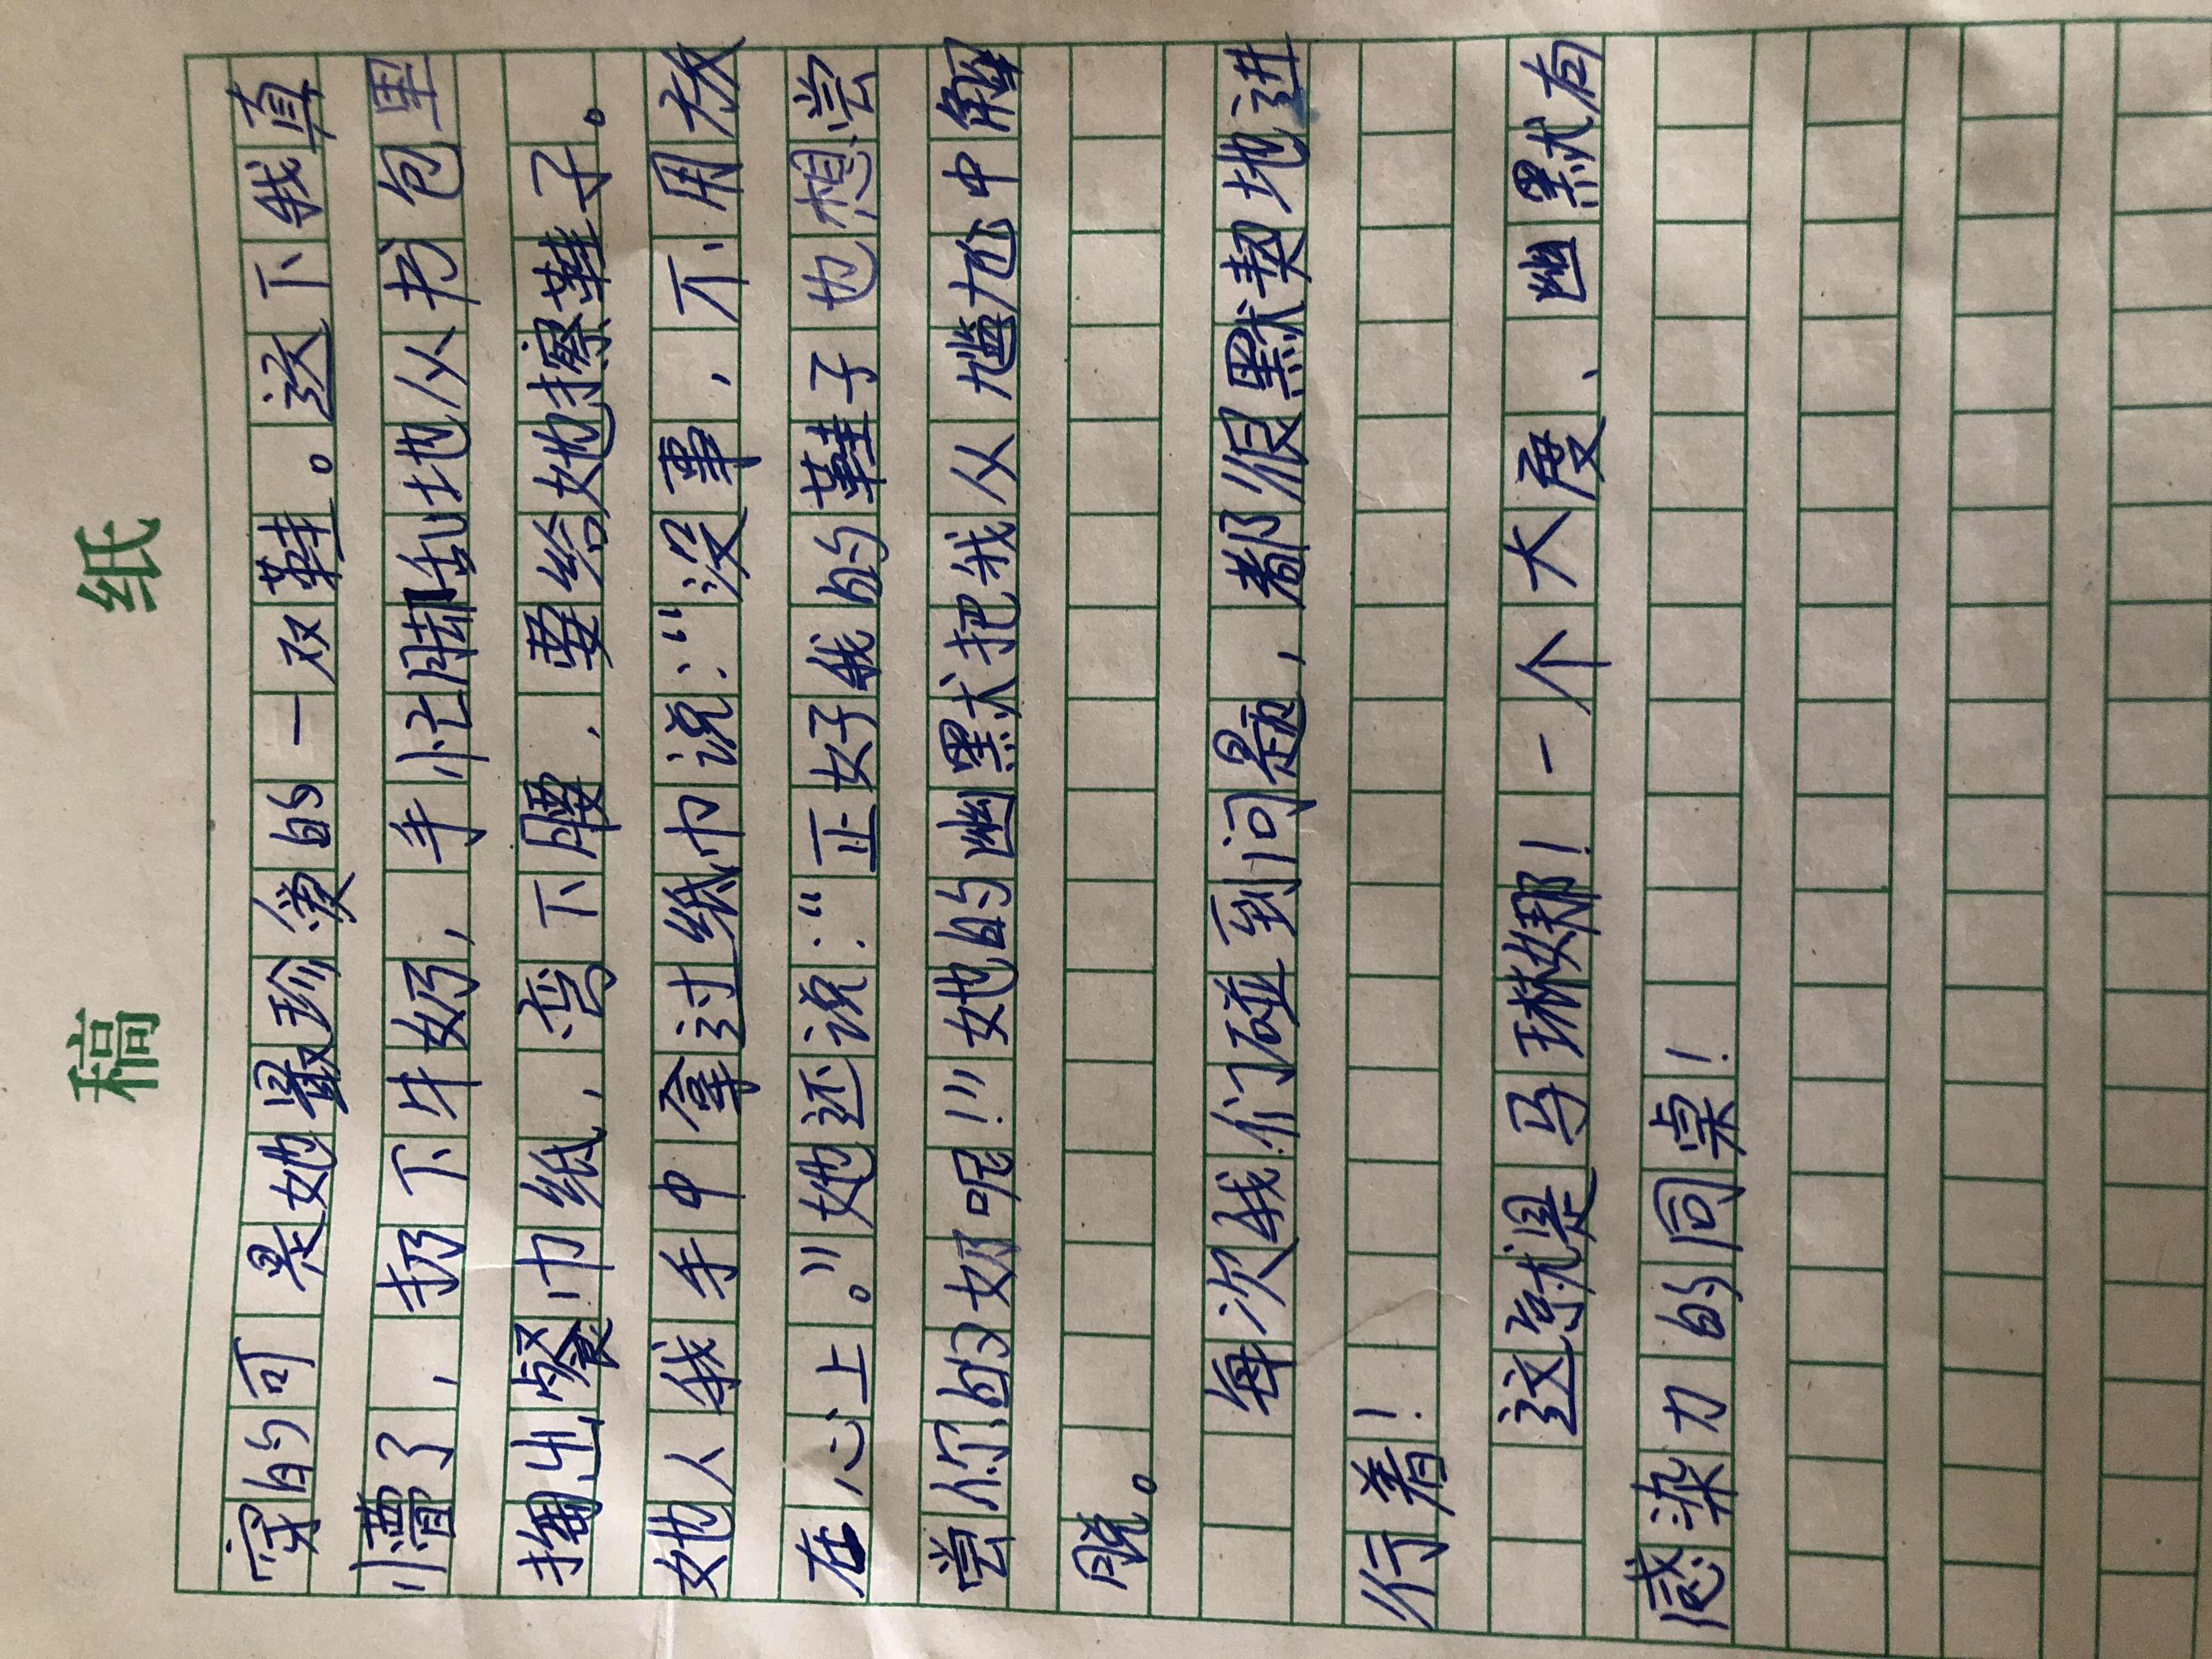 稿 纸
穿的可是她最珍爱的一双鞋。这下我真
懵了，扔下牛奶，手忙脚乱地从书包里
掏出餐巾纸，弯下腰，要给她擦鞋子。
她人我手中拿过纸巾说：“没事，不用放
在心上。”她还说：“正好我的鞋子也想尝
尝你的奶呢！”她的幽默把我从尴尬中解
脱。
每次我们碰到问题，都很默契地进
行着！
这就是马琳娜！一个大度、幽默有
感染力的同桌！